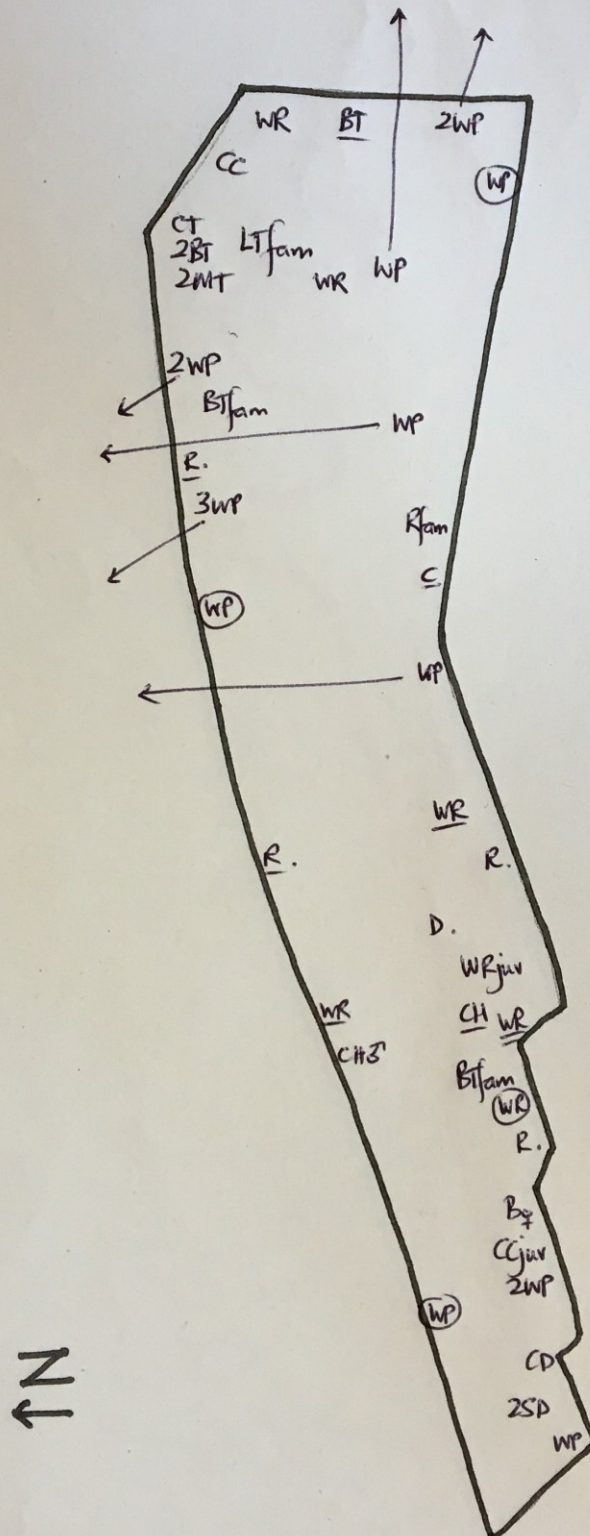 WR BT 2WP
CC
WP
CT
2BT LTfam
2MT WR WP
2WP
BTfam
WP
R.
3WP
Rfam
C
WP
WP
WR
R.
R.
D.
WRjuv
WR
CH WR
CH♂
BTfam
WR
R.
B♀
CCjuv
2WP
WP
CD
2SD
WP
N